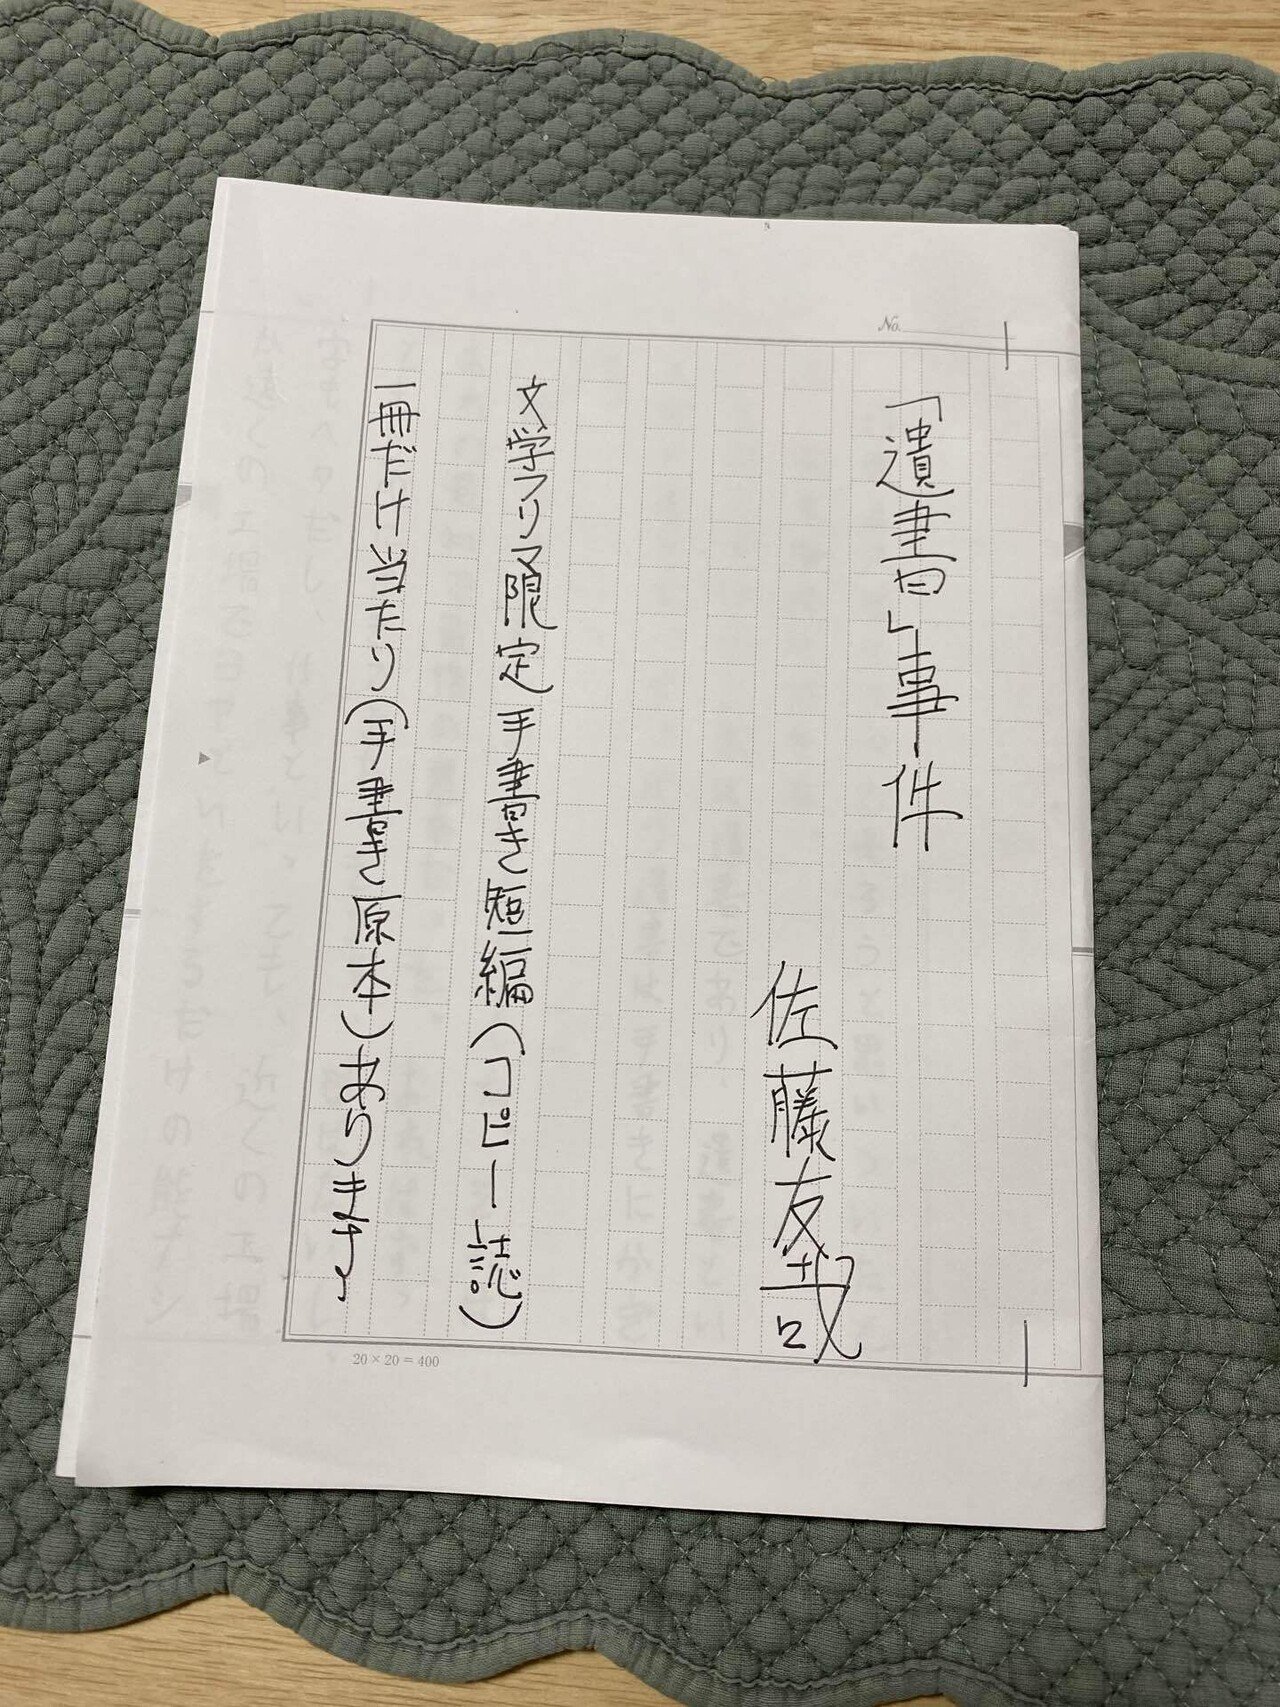 No.
「遺書」事件
佐藤友哉
文学フリマ限定 手書き短編(コピー誌)
一冊だけ当たり(手書き原本)あります
20×20=400